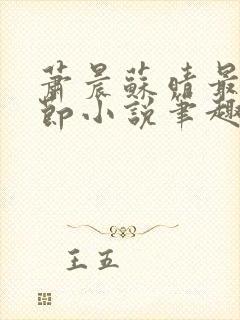 蕭晨蘇晴最
節小說筆趣
王五